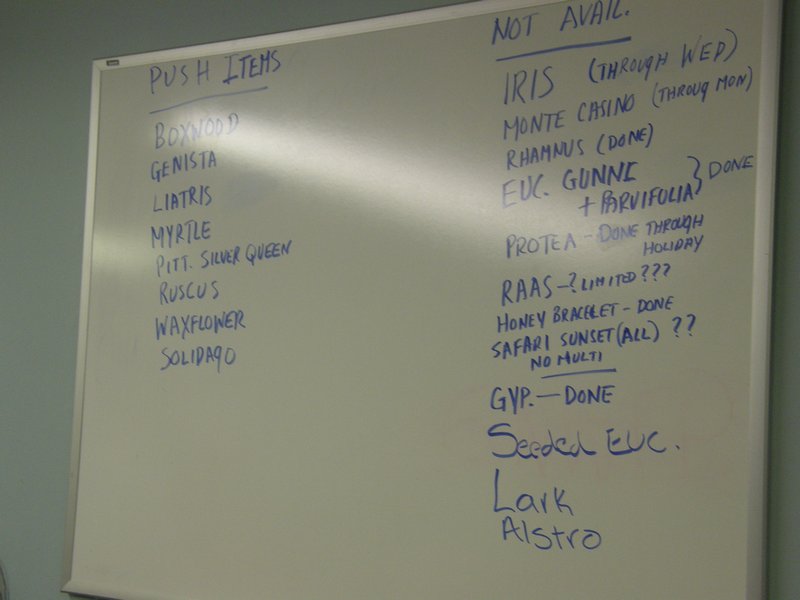 PUSH ITEMS
BOXWOOD
GENISTA
LIATRIS
MYRTLE
PITT. SILVER QUEEN
RUSCUS
WAXFLOWER
SOLIDAGO
NOT AVAIL.
IRIS (THROUGH WED)
MONTE CASINO (THROUG MON)
RHAMNUS (DONE)
EUC. GUNNI
+ PARVIFOLIA } DONE
PROTEA - DONE THROUGH
HOLIDAY
RAAS - ? LIMITED ???
HONEY BRACELET - DONE
SAFARI SUNSET (ALL) ??
NO MULTI
GYP. — DONE
Seeded EUC.
Lark
Alstro